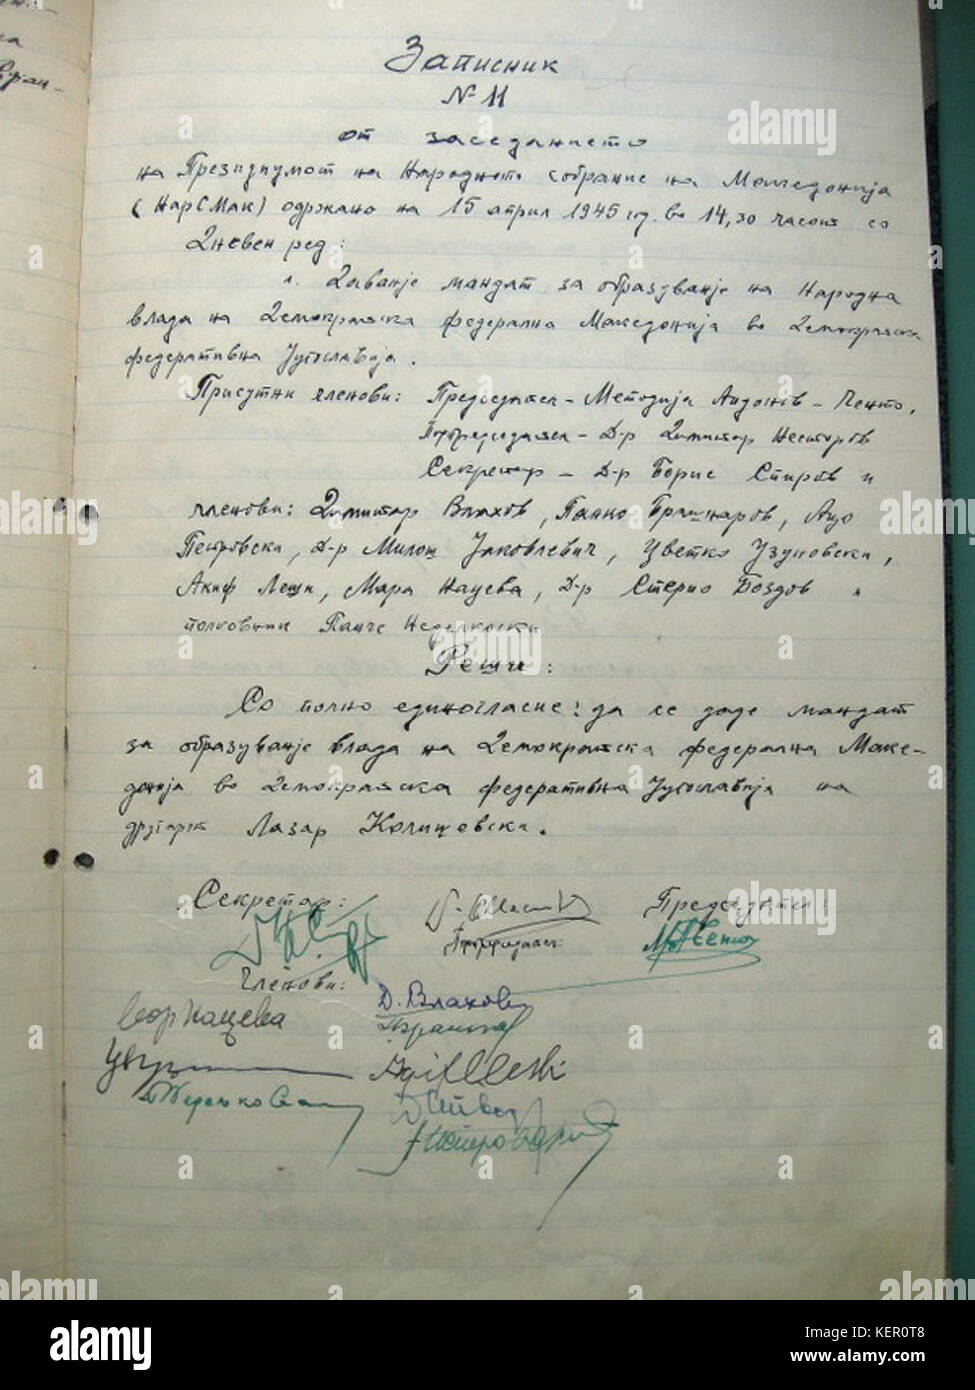 Записник
№ 11
от заседанието
на Президиумот на Народното собрание на Македонија
(НарСМак) одржано на 15 април 1945 год. во 14,30 часот со
дневен ред:
1. Давање мандат за образување на Народна
влада на Демократска федерална Македонија во Демократска
федеративна Југославија.
Присутни членови: Председател – Методија Андонов – Ченто,
Потпредседател – Д-р Димитар Несторов
Секретар – Д-р Борис Спиров и
членови: Димитар Влахов, Панко Брашнаров, Ацо
Петровски, Д-р Милош Јаковлевич, Цветко Узуновски,
Акиф Леши, Мара Нацева, Д-р Стерио Боздов и
полковник Панче Неделкоски
Реши:
Со полно единогласие: да се даде мандат
за образување влада на Демократска федерална Маке-
донија во Демократска федеративна Југославија на
другарот Лазар Колишевски.
Секретар:
Председател:
Потпредседател:
М.А.Ченто
Членови:
Д. Влахов
Нацева
alamy
alamy
Image ID: KER0T8
www.alamy.com